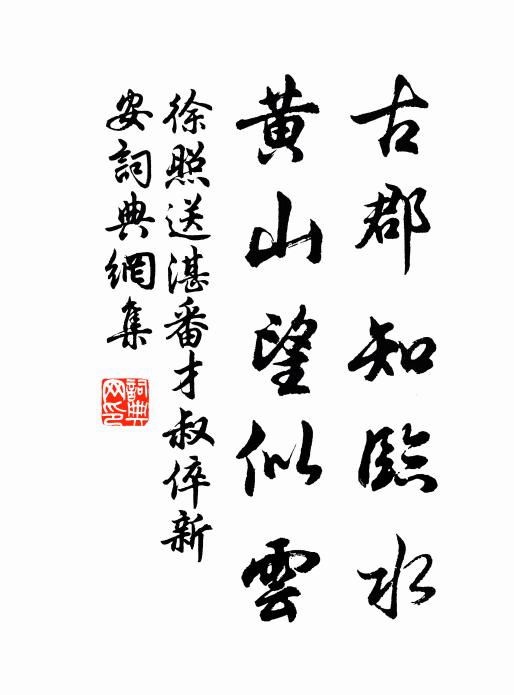 古郡知臨水
黄山望似雲
徐照送湛番才叔倅新
安詞典網集
詞典
网印